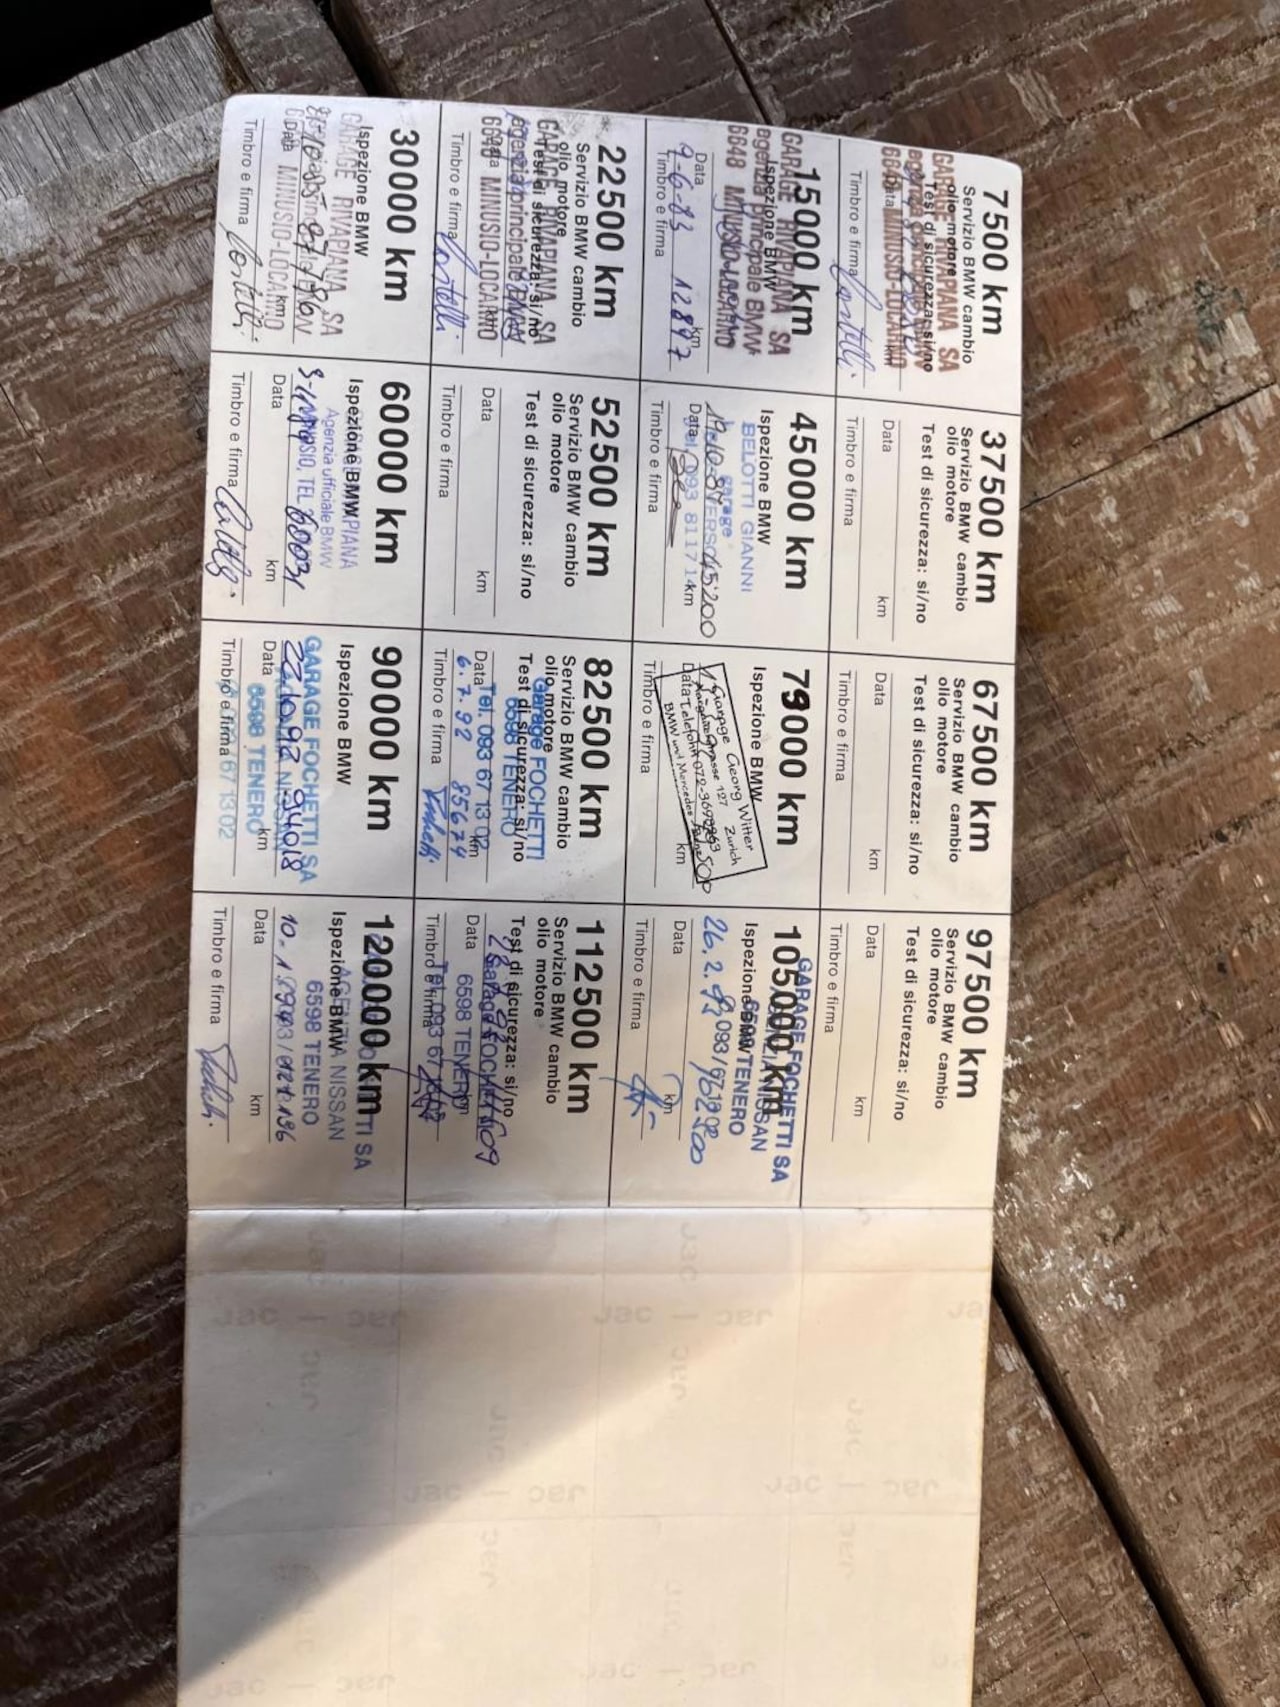 7500 km
Servizio BMW cambio
olio motore
Test di sicurezza: si/no
GARAGE RIVAPIANA SA
agenzia principale BMW
6648 MINUSIO-LOCARNO
Data
Timbro e firma
15000 km
Ispezione BMW
GARAGE RIVAPIANA SA
agenzia principale BMW
6648 MINUSIO-LOCARNO
Data
km
9-6-83 12897
Timbro e firma
22500 km
Servizio BMW cambio
olio motore
Test di sicurezza: si/no
GARAGE RIVAPIANA SA
agenzia principale BMW
6648 MINUSIO-LOCARNO
Data
Timbro e firma
30000 km
Ispezione BMW
GARAGE RIVAPIANA SA
MINUSIO-LOCARNO
Data
km
Timbro e firma
37500 km
Servizio BMW cambio
olio motore
Test di sicurezza: si/no
Data
km
Timbro e firma
45000 km
Ispezione BMW
BELOTTI GIANNI
garage
45200
Tel. 093 81 17 14
Data
km
Timbro e firma
52500 km
Servizio BMW cambio
olio motore
Test di sicurezza: si/no
Data
km
Timbro e firma
60000 km
Ispezione BMW
RIVAPIANA
Agenzia ufficiale BMW
MINUSIO, TEL
Data
km
Timbro e firma
67500 km
Servizio BMW cambio
olio motore
Test di sicurezza: si/no
Data
km
Timbro e firma
79000 km
Ispezione BMW
Garage Georg Witter
127 Zurich
Telefon
BMW und Mercedes
Data
km
Timbro e firma
82500 km
Servizio BMW cambio
olio motore
Test di sicurezza: si/no
Garage FOCHETTI
6598 TENERO
Tel. 093 67 13 02
Data
km
6.7.92 85674
Timbro e firma
90000 km
Ispezione BMW
GARAGE FOCHETTI SA
94018
6598 TENERO
67 13 02
Data
km
Timbro e firma
97500 km
Servizio BMW cambio
olio motore
Test di sicurezza: si/no
Data
km
Timbro e firma
105000 km
Ispezione BMW
GARAGE FOCHETTI SA
AGENZIA NISSAN
6598 TENERO
26.2.93
Data
km
Timbro e firma
112500 km
Servizio BMW cambio
olio motore
Test di sicurezza: si/no
Garage FOCHETTI
6598 TENERO
Data
km
Timbro e firma
120000 km
Ispezione BMW
AGENZIA NISSAN
6598 TENERO
Data
km
Timbro e firma